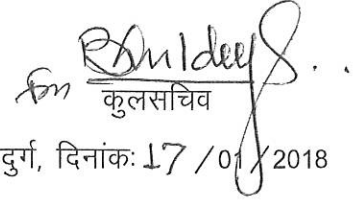 कुलसचिव
दुर्ग, दिनांक: 17 /01/2018